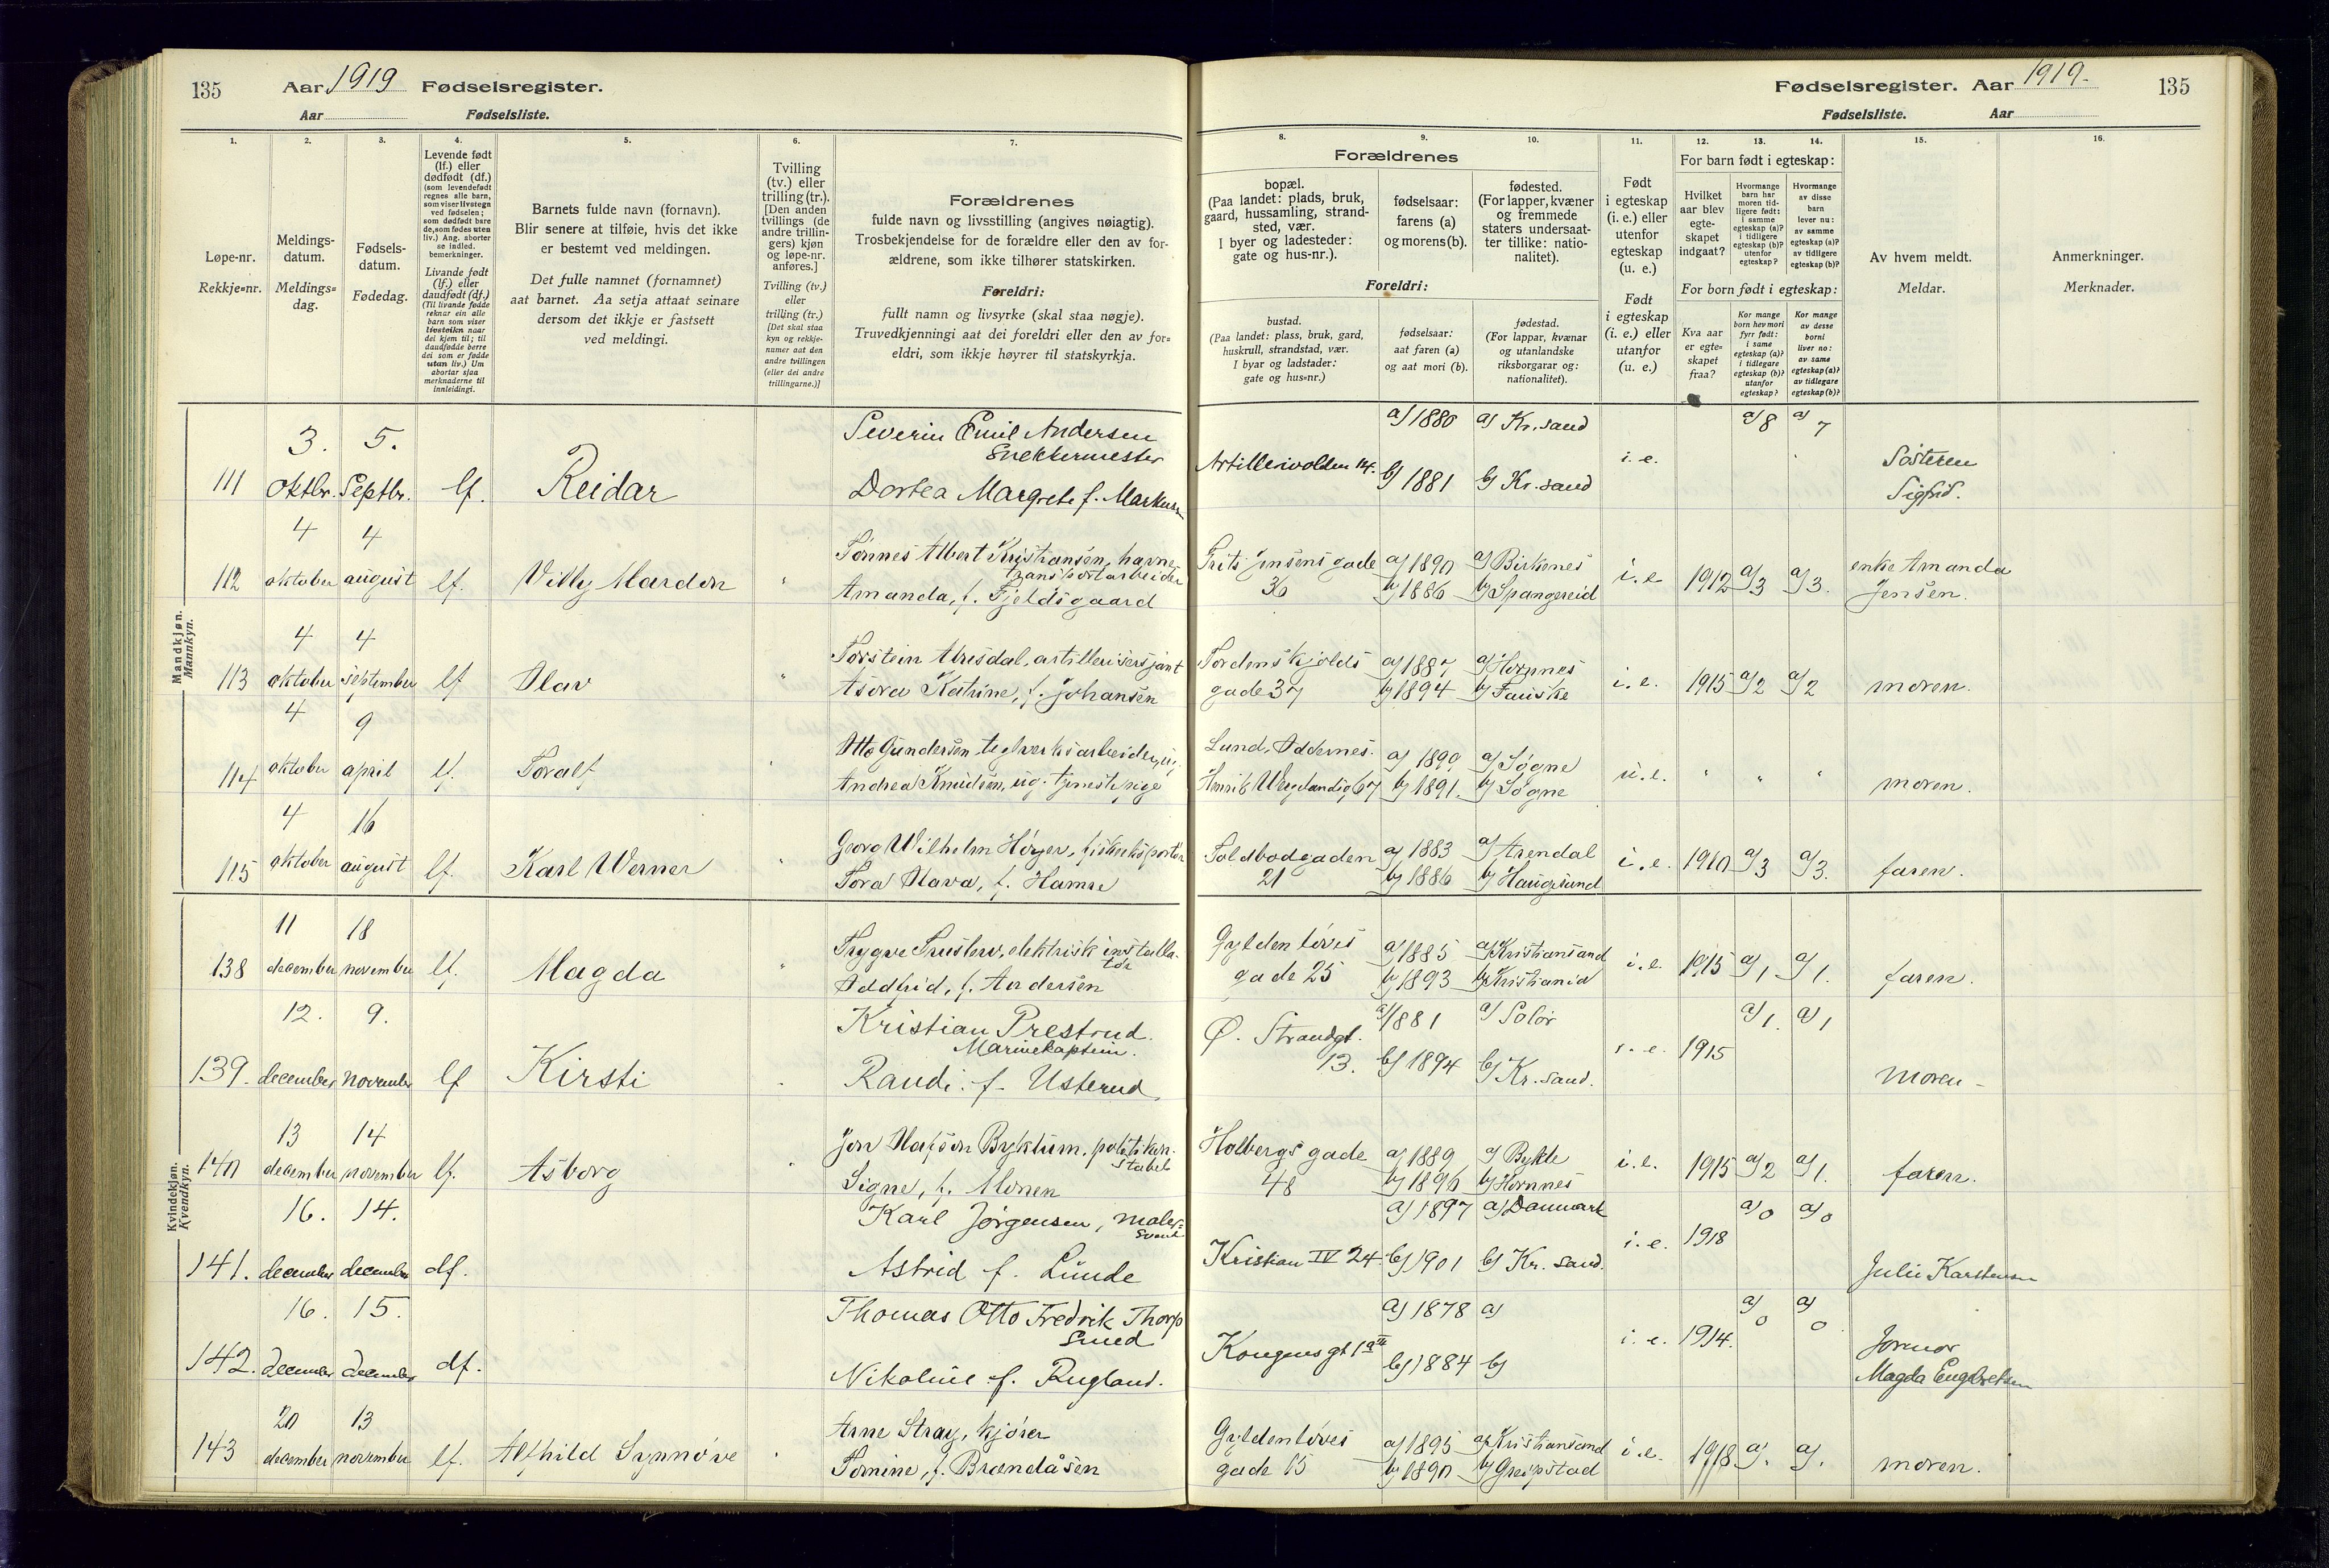 135
Aar 1919 Fødselsregister.
Aar Fødselsliste.
1.
2.
3.
4.
5.
6.
7.
Løpe-nr.
Rekkje=nr.
Meldings-
datum.
Meldings=
dag.
Fødsels-
datum.
Fødedag.
Levende født
(lf.) eller
dødfødt (df.)
(som levendefødt
regnes alle barn,
som viser livstegn
ved fødselen;
som dødfødt bare
de, som fødes uten
liv.) Ang. aborter
se indled.
bemerkninger.
Livande født
(lf.) eller
daudfødt (df.)
(Til livande fødde
reknar ein alle
barn som viser
livsteikn naar
dei kjem til; til
daudfødde berre
dei som er fødde
utan liv.) Um
abortar sjaa
merknaderne til
innleidingi.
Barnets fulde navn (fornavn).
Blir senere at tilføie, hvis det ikke
er bestemt ved meldingen.
Det fulle namnet (fornamnet)
aat barnet. Aa setja attaat seinare
dersom det ikkje er fastsett
ved meldingi.
Tvilling
(tv.) eller
trilling (tr.).
[Den anden
tvillings (de
andre trillin-
gers) kjøn
og løpe-nr.
anføres.]
Tvilling (tv.)
eller
trilling (tr.)
[Det skal staa
kyn og rekkje-
numer aat den
andre tvillingen
(eller dei andre
trillingarne.)]
Forældrenes
fulde navn og livsstilling (angives nøiagtig).
Trosbekjendelse for de forældre eller den av for-
ældrene, som ikke tilhører statskirken.
Foreldri:
fullt namn og livsyrke (skal staa nøgje).
Truvedkjenningi aat dei foreldri eller den av for=
eldri, som ikkje høyrer til statskyrkja.
Fødselsregister. Aar 1919.
135
Fødselsliste. Aar
8.
9.
10.
11.
12.
13.
14.
15.
16.
Forældrenes
bopæl.
(Paa landet: plads, bruk,
gaard, hussamling, strand-
sted, vær.
I byer og ladesteder:
gate og hus-nr.).
fødselsaar:
farens (a)
og morens (b).
fødested.
(For lapper, kvæner
og fremmede
staters undersaat-
ter tillike: natio-
nalitet).
Foreldri:
bustad.
(Paa landet: plass, bruk, gard,
huskrull, strandstad, vær.
I byar og ladstader:
gate og hus=nr.)
fødselsaar:
aat faren (a)
og aat mori (b).
fødestad.
(For lappar, kvænar
og utanlandske
riksborgarar og:
nationalitet).
Født
i egteskap
(i. e.) eller
utenfor
egteskap
(u. e.)
Født
i egteskap
(i. e.) eller
utanfor
(u. e.)
For barn født i egteskap:
Hvilket
aar blev
egte-
skapet
indgaat?
Hvormange
barn har
moren tid-
ligere født:
i samme
egteskap (a)?
i tidligere
egteskap (b)?
utenfor
egteskap?
Hvormange
av disse
barn
lever nu:
av samme
egteskap (a)?
av tidligere
egteskap (b)?
For born født i egteskap:
Kva aar
er egte=
skapet
fraa?
Kor mange
born hev mori
fyrr født:
i same
egteskap (a)?
i tidlegare
egteskap (b)?
utanfor
egteskap?
Kor mange
av desse
borni
liver no:
av same
egteskap (a)?
av tidlegare
egteskap (b)?
Av hvem meldt.
Meldar.
Anmerkninger.
Merknader.
Mandkjøn.
Mannkyn.
111 3. oktbr. 5. Septbr. lf. Reidar
Severin Emil Andersen
Snekkermester
Dortea Margrete f. Markuss
Artillerivolden 14. a) 1880 a) Kr.sand a) 8 a) 7
b) 1881 b) Kr.sand i. e.
Søsteren
Sigfrid.
112 4 oktober 4 august lf. Villy Mardon
Tønnes Albert Kristiansen, havne-
transportarbeider
Amanda, f. Fjeldsgaard
Frits Jensens gade a) 1890 a) Birkenes
36 b) 1886 b) Spangereid i. e. 1912 a) 3 a) 3.
enke Amanda
Jensen.
113 4 oktober 4 september lf Olav
Torstein Aresdal, artillerisersjant
Asora Katrine, f. Johansen
Tordenskjolds a) 1887 a) Hornnes
gade 37 b) 1894 b) Fauske i. e. 1915 a) 2 a) 2 moren.
114 4 oktober 9 april lf. Toralf
Otto Gundersen teglverksarbeider, ug.
Andrea Knudsen, ug. tjenestepige
Lund, Oddernes. a) 1899 a) Søgne
Henrik Wergelandsg 67 b) 1891. b) Søgne u. e. moren.
115 4 oktober 16 august lf. Karl Werner
Georg Wilhelm Høyer, fiskeeksportør
Tora Olava, f. Hamre
Toldbodgaden a) 1883 a) Arendal
21 b) 1886 b) Haugesund i. e. 1910 a) 3 a) 3. faren.
Kvindekjøn.
Kvendkyn.
138 11 december 18 november lf. Magda
Trygve Truslew, elektrisk installa-
tør
Oddfrid, f. Andersen
Gyldenløves a) 1885 a) Kristiansand
gade 25 b) 1893 b) Kristiania i. e. 1915 a) 1. a) 1. faren.
139. 12. december 9. november lf Kirsti
Kristian Prestrud.
Marinekaptein.
Randi f. Usterud.
Ø. Strandgt. a) 1881 a) Solør a) 1. a) 1
13. b) 1894 b) Kr.sand. i. e. 1915 Moren
140 13 december 14 november lf. Asborg
Jon Olafson Byklum, politikon-
stabel
Signe, f. Monen
Holbergs gade a) 1889 a) Bykle
48 b) 1896 b) Hornnes i. e. 1915 a) 2 a) 1. faren.
141. 16. december 14. december df.
Karl Jørgensen, maler=
svend.
Astrid f. Lunde
a) 1897 a) Danmark a) 0 a) 0
Kristian IV 24 b) 1901 b) Kr. sand. i. e. 1918 Julie Karstensen
142. 16. december 15. december df.
Thomas Otto Fredrik Thorp
Smed
Nikoline f. Rugland.
a) 1878 a) a) 0 a) 0
Kongensgt 19 II b) 1884 b) i. e. 1914.
Jormor
Magda Engebretsen
143 20 december 13 november lf. Alfhild Synnøve
Arne Stray, kjører
Tomine, f. Brændåsen
Gyldenløves a) 1895 a) Kristiansand
gade 15 b) 1890 b) Greipstad i. e. 1918 a). a). moren.